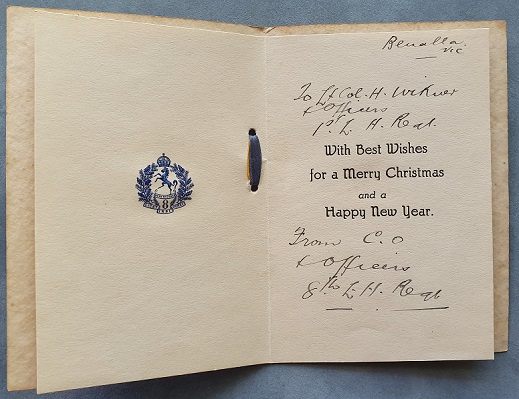 8
Benalla.
Vic
To Lt Col. H. Wikner
& Officers
1st L. H. Regt.
With Best Wishes
for a Merry Christmas
and a
Happy New Year.
From C. O
& Officers
8th L. H. Regt